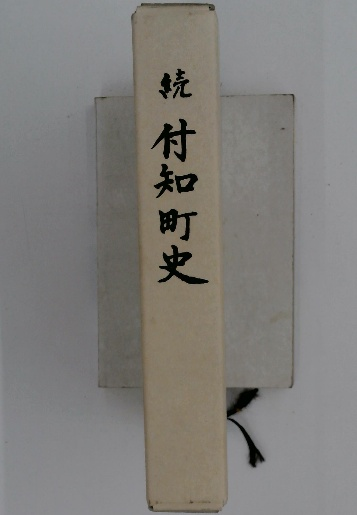 続 付知町史